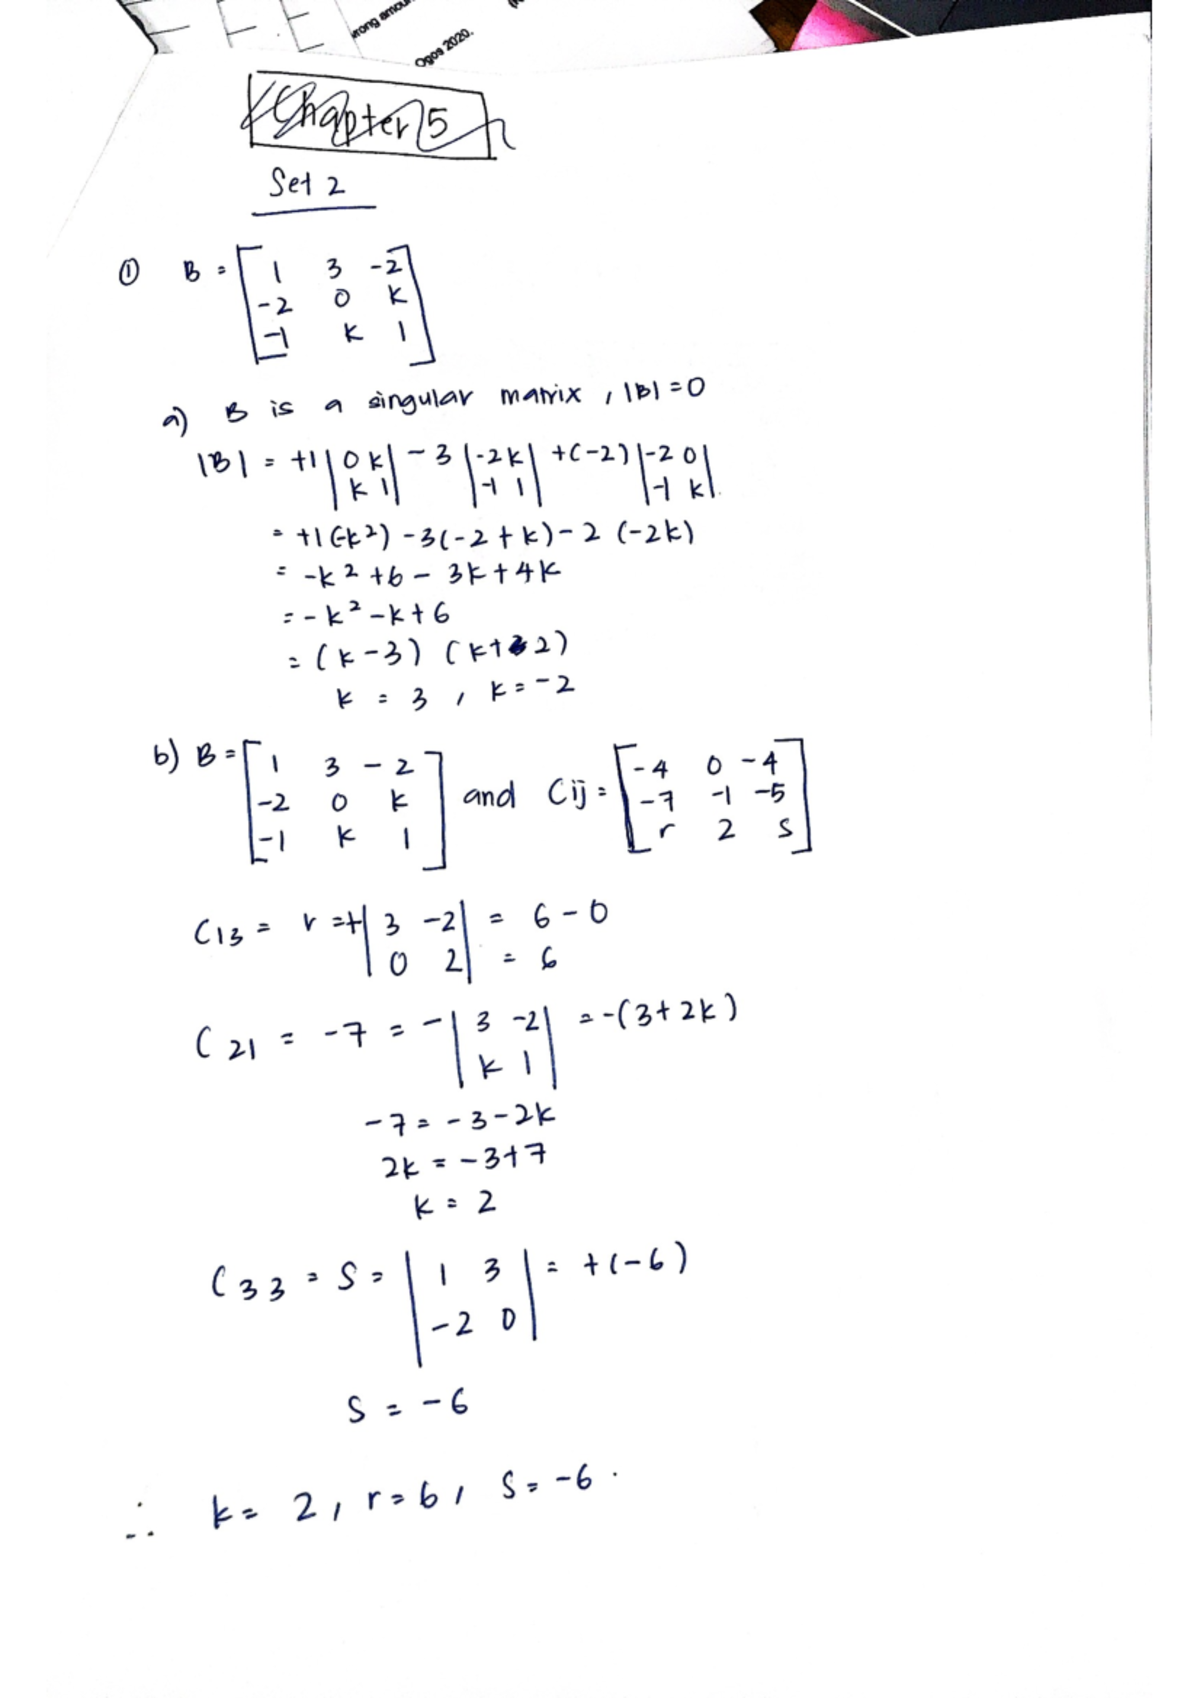 FEE
wrong amou
Ogos 2020.
Chapter 5
Set 2
① B = [ 1 3 -2
-2 0 k
-1 k 1 ]
a) B is a singular matrix, |B| = 0
|B| = +1 |0 k| - 3 |-2 k| + (-2) |-2 0|
|k 1| |-1 1| |-1 k|.
= +1(-k²) - 3(-2 + k) - 2 (-2k)
= -k² + 6 - 3k + 4k
= -k² - k + 6
= (k - 3) (k + 2)
k = 3 , k = -2
b) B = [ 1 3 -2
-2 0 k
-1 k 1 ] and Cij = [ -4 0 -4
-7 -1 -5
r 2 s ]
C13 = r = + |3 -2| = 6 - 0
|0 2| = 6
C21 = -7 = - |3 -2| = -(3 + 2k)
|k 1|
-7 = -3 - 2k
2k = -3 + 7
k = 2
C33 = S = |1 3| = +(-6)
|-2 0|
S = -6
∴ k = 2, r = 6, S = -6.